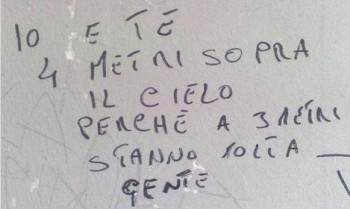 10 E TE
4 METRI SOPRA
IL CIELO
PERCHÉ A 3 METRI
STANNO TOLTA
GENTE